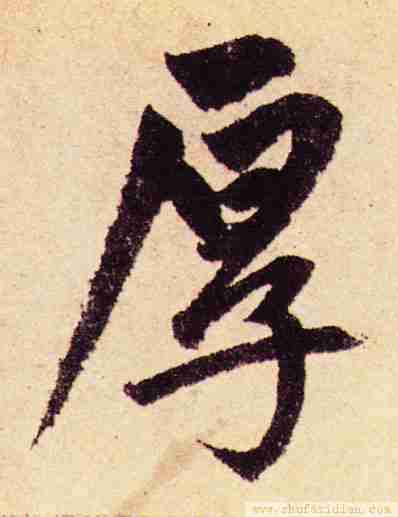 厚
www.shufazidian.com